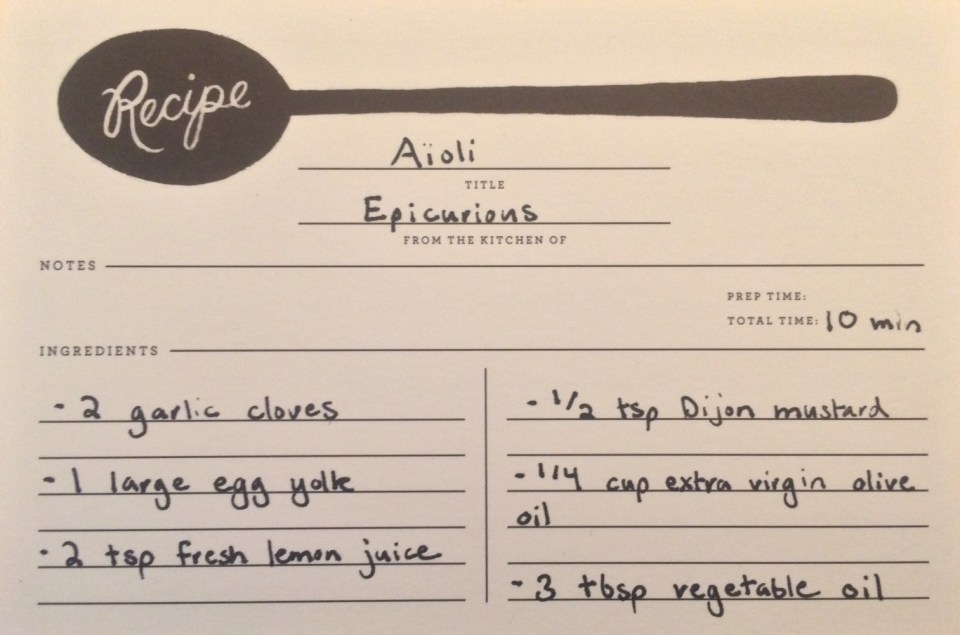 Recipe
Aïoli
TITLE
Epicurious
FROM THE KITCHEN OF
NOTES
PREP TIME:
TOTAL TIME: 10 min
INGREDIENTS
- 2 garlic cloves
- 1 large egg yolk
- 2 tsp fresh lemon juice
- 1/2 tsp Dijon mustard
- 1/4 cup extra virgin olive
oil
- 3 tbsp vegetable oil